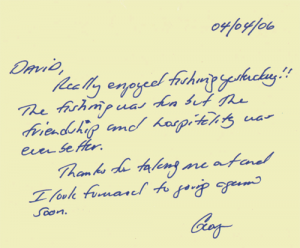 04/04/06
DAVID,
Really enjoyed fishing yesterday!!
The fishing was fun but the
friendship and hospitality was
even better.
Thanks for taking me out and
I look forward to going again
soon.